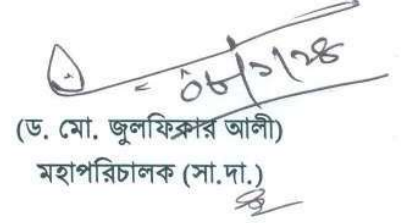 ০৮/১/২৪
(ড. মো. জুলফিকার আলী)
মহাপরিচালক (সা.দা.)